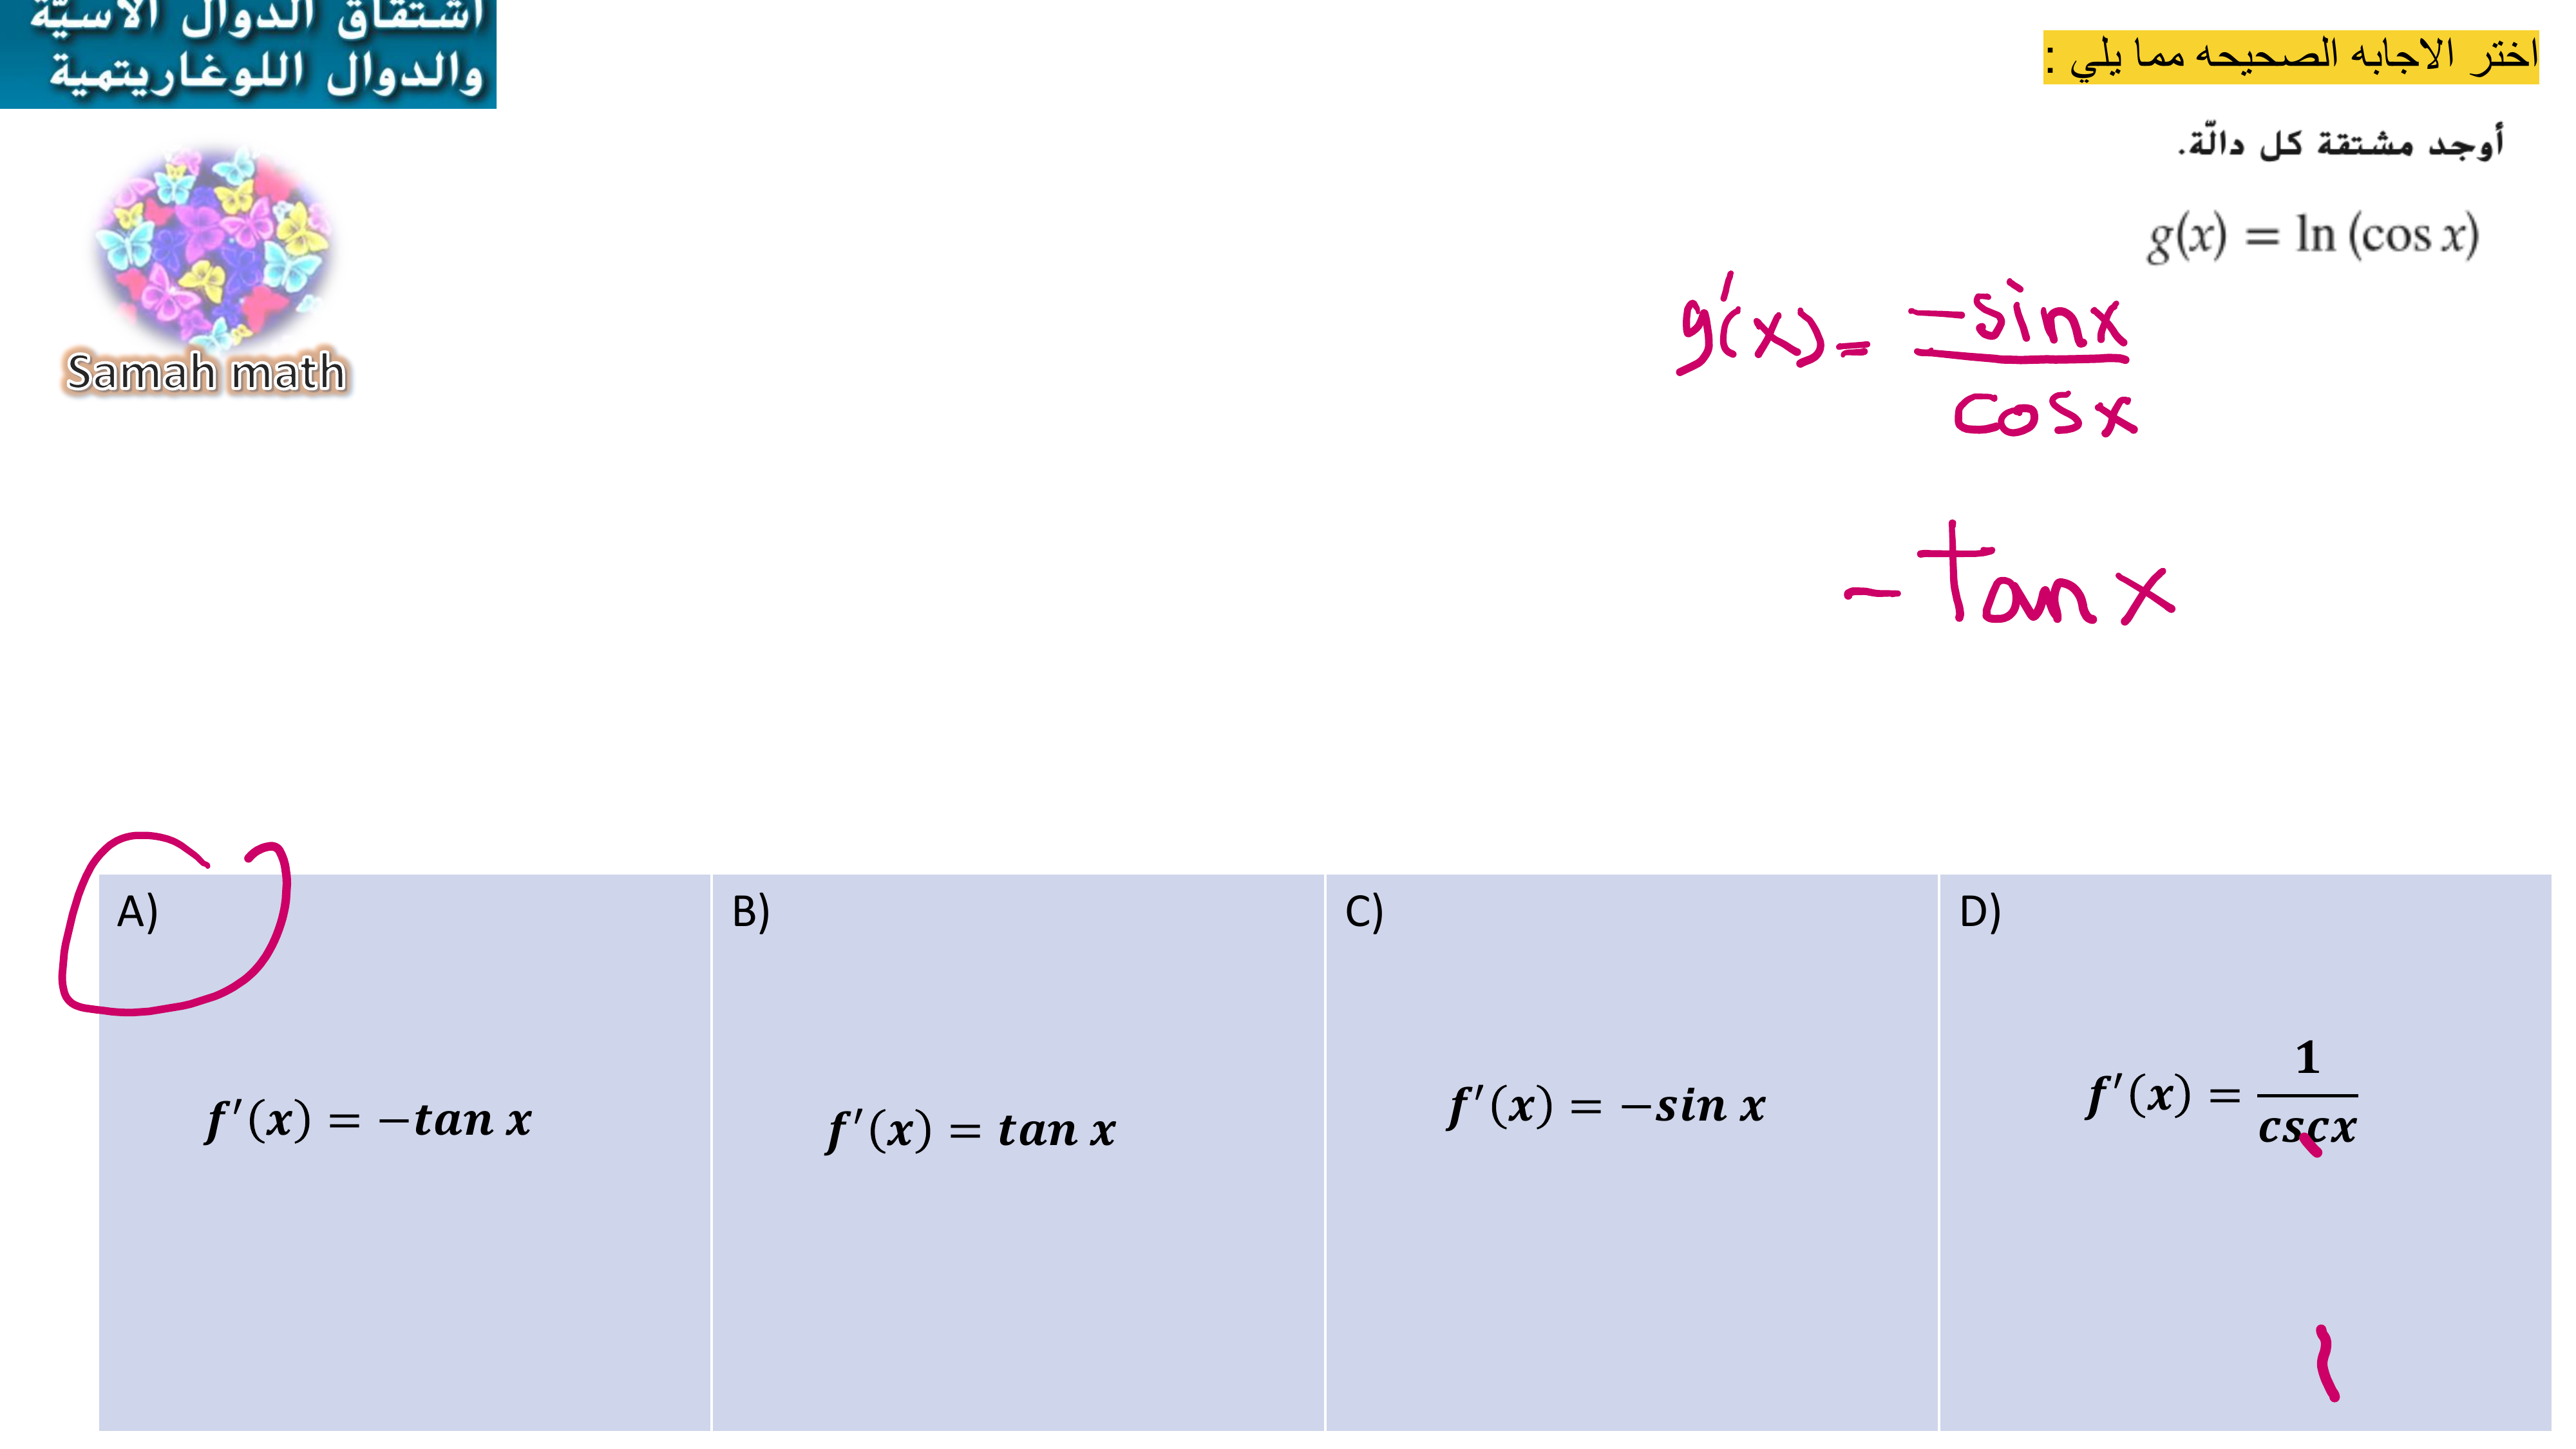 اشتقاق الدوال الأسيّة
والدوال اللوغاريتمية
اختر الاجابه الصحيحه مما يلي :
Samah math
أوجد مشتقة كل دالّة.
g(x) = ln (cos x)
g'(x) = -sinx / cosx
- tan x
A)
f′(x) = −tan x
B)
f′(x) = tan x
C)
f′(x) = −sin x
D)
f′(x) = 1 / cscx